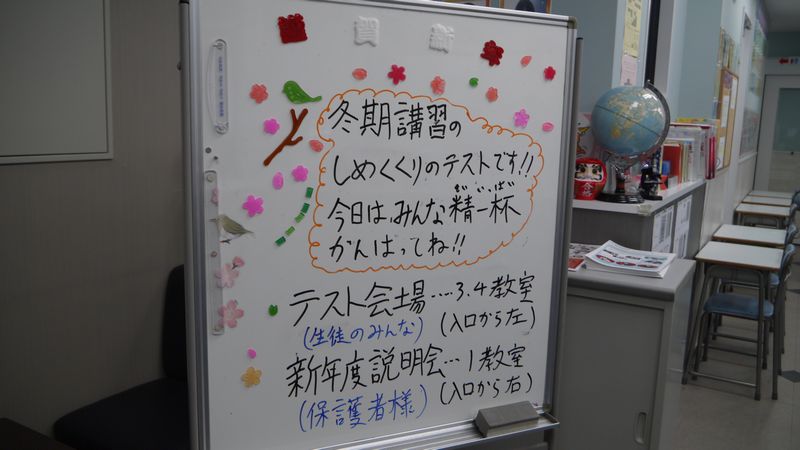 賀 新
冬期講習の
しめくくりのテストです!!
せい いっぱい
今日はみんな精一杯
がんばってね!!
テスト会場……3.4教室
(生徒のみんな) (入口から左)
新年度説明会…1教室
(保護者様) (入口から右)
合格